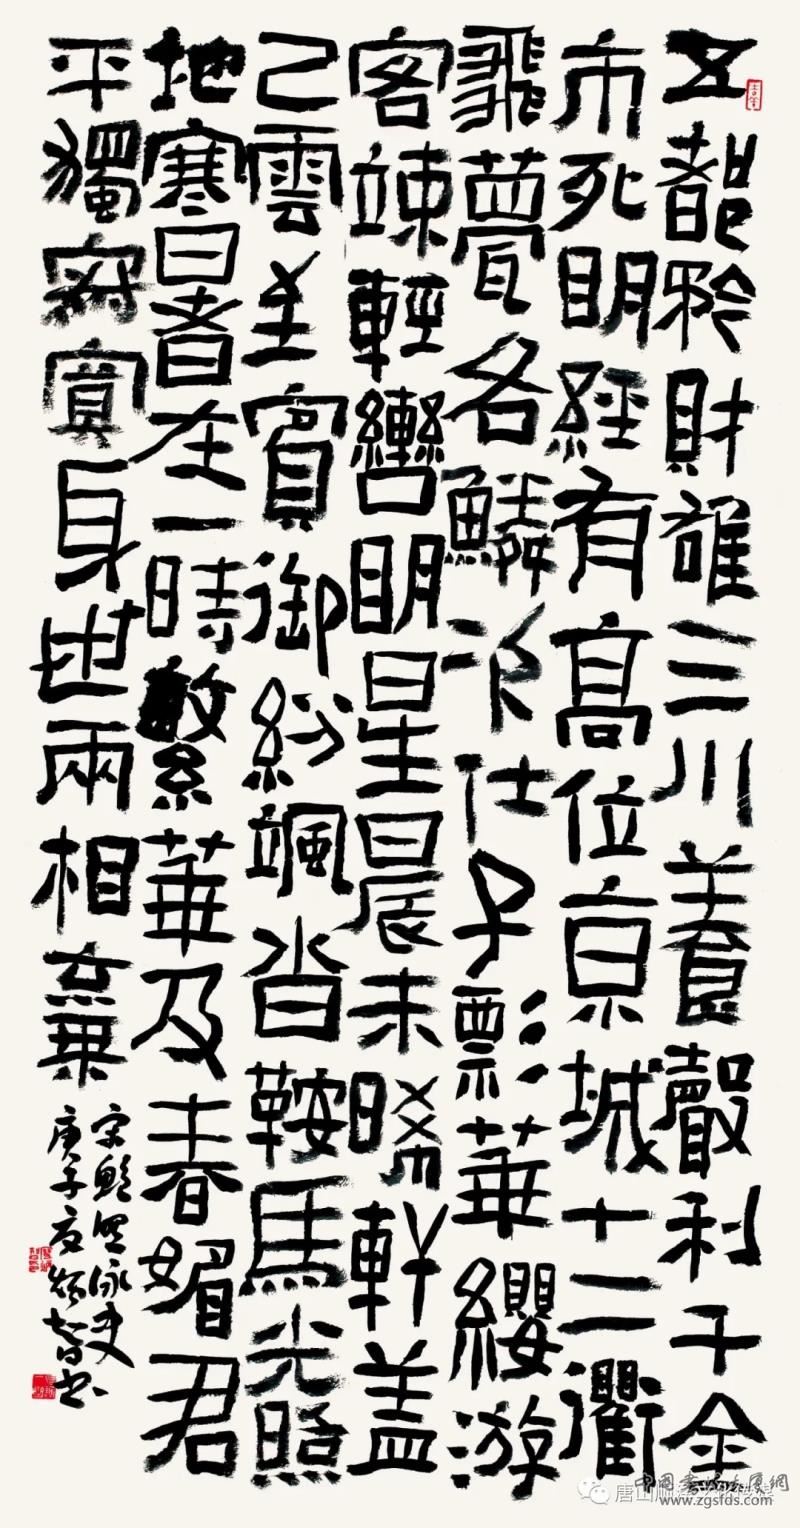 五都矜財雄三川養聲利千金
市死明經有高位京城十二衢
飛甍各鱗次仕子彯華纓游
客竦輕轡明星晨未晞軒蓋
已雲至賓御紛颯沓鞍馬光照
地寒暑在一時繁華及春媚君
平獨寂寞身世兩相棄
宋鮑照詠史
庚子夏智書
唐山
www.zgsfds.com